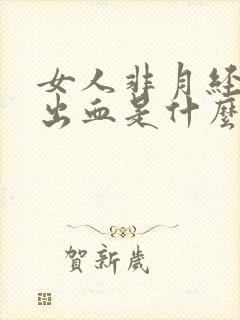 女人非月经
出血是什麼
賀新歲